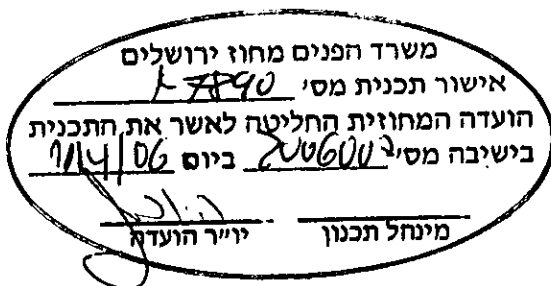 משרד הפנים מחוז ירושלים
אישור תכנית מס'
הועדה המחוזית החליטה לאשר את התכנית
בישיבה מס' ביום
מינהל תכנון יו״ר הועדה